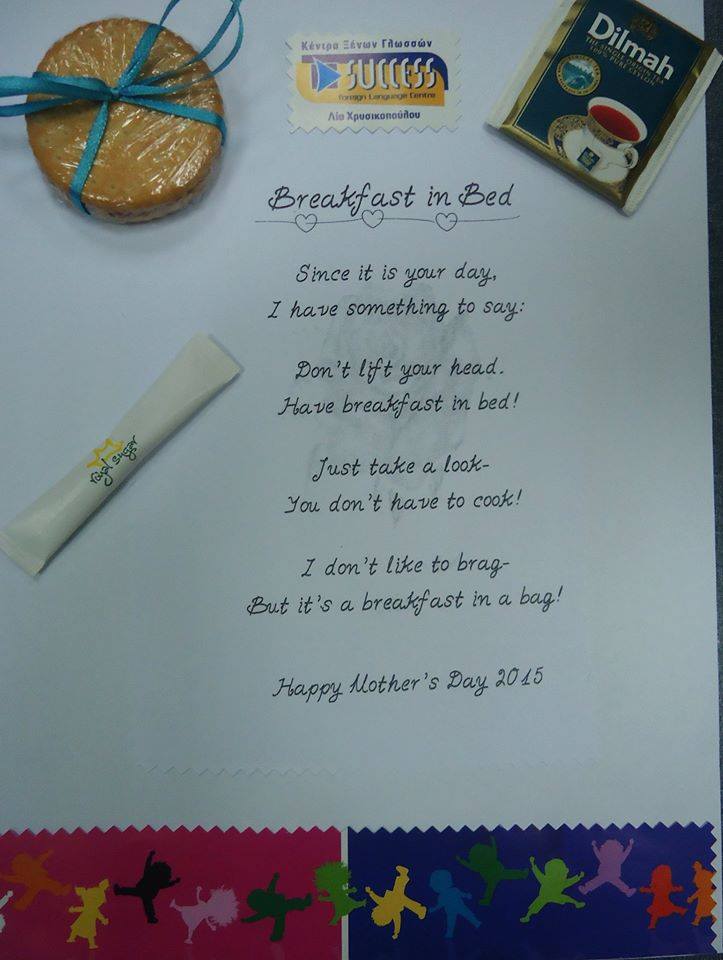 Κέντρα Ξένων Γλωσσών
SUCCESS
Foreign Language Centre
Λία Χρυσικοπούλου
Dilmah
Breakfast in Bed
Since it is your day,
I have something to say:
Don't lift your head.
Have breakfast in bed!
Just take a look-
You don't have to cook!
I don't like to brag-
But it's a breakfast in a bag!
Happy Mother's Day 2015
royal sugar